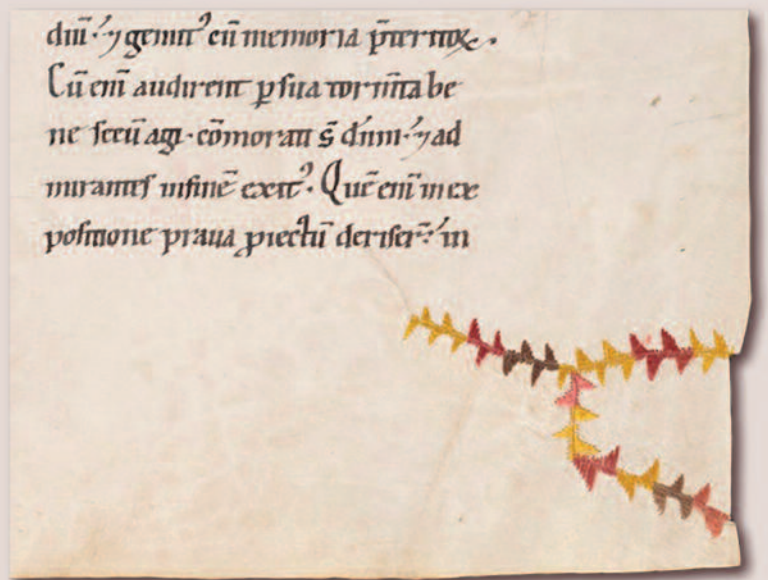 diu᷑ ⁊ gemit᷒ cū memoria p̄ternox.
Cū eni᷑ audirent ꝑ sua torm̄ta be
ne secū agi · cōmorati s̄ dn̄m ⁊ ad
mirantes in finē exit᷒. Quē eni᷑ in ex
positione praua ꝓiectū deriser̄ in